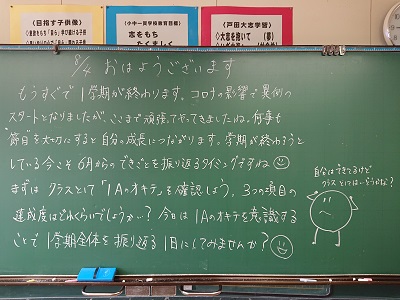 《目指す子供像》
《小中一貫学校教育目標》
志をもち
たくましく
《戸田大志学習》
◇大志を抱いて (夢)
8/4 おはようございます
もうすぐで1学期が終わります。コロナの影響で異例の
スタートとなりましたが、ここまで頑張ってやってきましたね。何事も
"節目"を大切にすると自分の成長につながります。学期が終わろうと
している今こそ6月からのできごとを振り返るタイミングですね
まずはクラスとして「1Aのオキテ」を確認しよう。3つの項目の
達成度はどれくらいでしょうか?今日は1Aのオキテを意識する
ことで1学期全体を振り返る1日にしてみませんか?
自分はできてるけど
クラスとしてはどうかな?